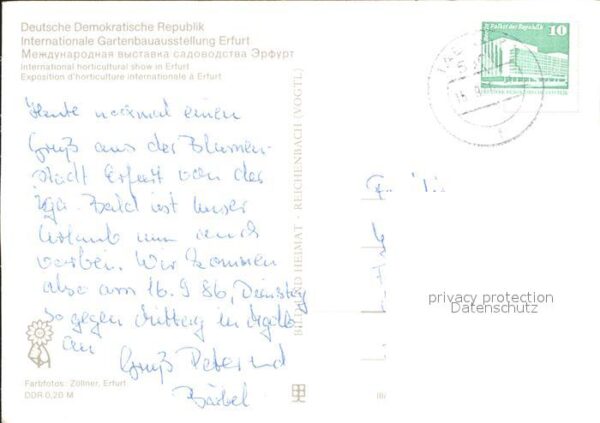 Deutsche Demokratische Republik
Internationale Gartenbauausstellung Erfurt
Международная выставка садоводства Эрфурт
International horticultural show in Erfurt
Exposition d'horticulture internationale à Erfurt
Heute nochmal einen
Gruß aus der Blumen-
stadt Erfurt von der
iga. Bald ist unser
Urlaub nun auch
vorbei. Wir kommen
also am 16.9.86, Dienstag
so gegen Mittag in
an
Gruß Peter und
Bärbel
Farbfotos: Zöllner, Erfurt
DDR 0,20 M
BILD UND HEIMAT · REICHENBACH (VOGTL)
Palast der Republik
10
privacy protection
Datenschutz